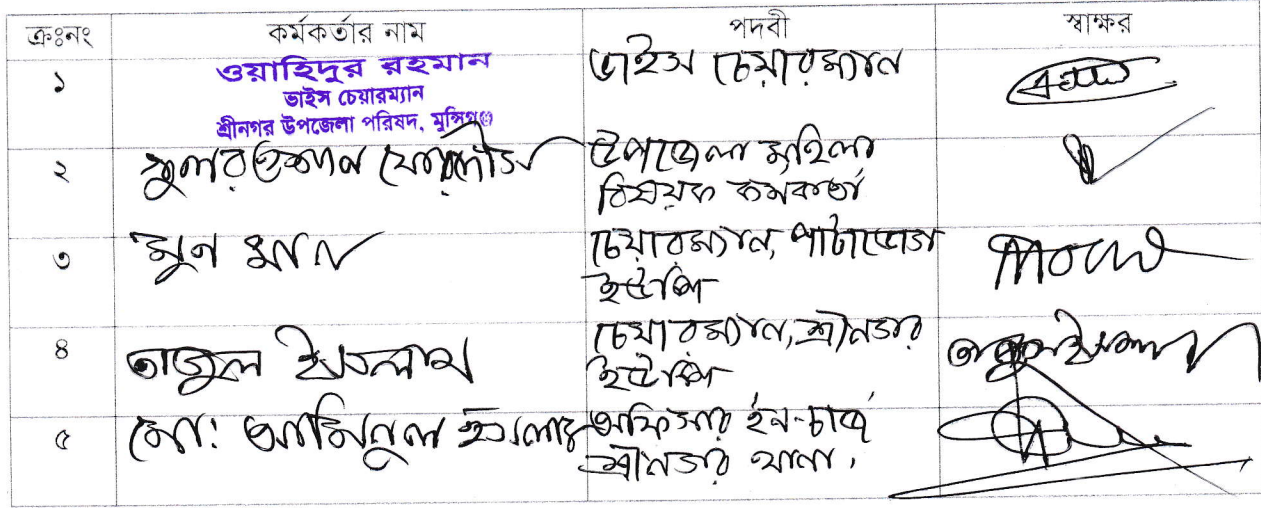 ক্রঃনং কর্মকর্তার নাম পদবী স্বাক্ষর
১ ওয়াহিদুর রহমান ভাইস চেয়ারম্যান
ভাইস চেয়ারম্যান
শ্রীনগর উপজেলা পরিষদ, মুন্সিগঞ্জ
২ ফেরদৌস উপজেলা মহিলা
বিষয়ক কর্মকর্তা
৩ মুন খান চেয়ারম্যান, পাটাভোগ
ইউপি
৪ তাজুল ইসলাম চেয়ারম্যান, শ্রীনগর তাজুল ইসলাম
ইউপি
৫ মো: আমিনুল ইসলাম অফিসার ইন-চার্জ
শ্রীনগর থানা।